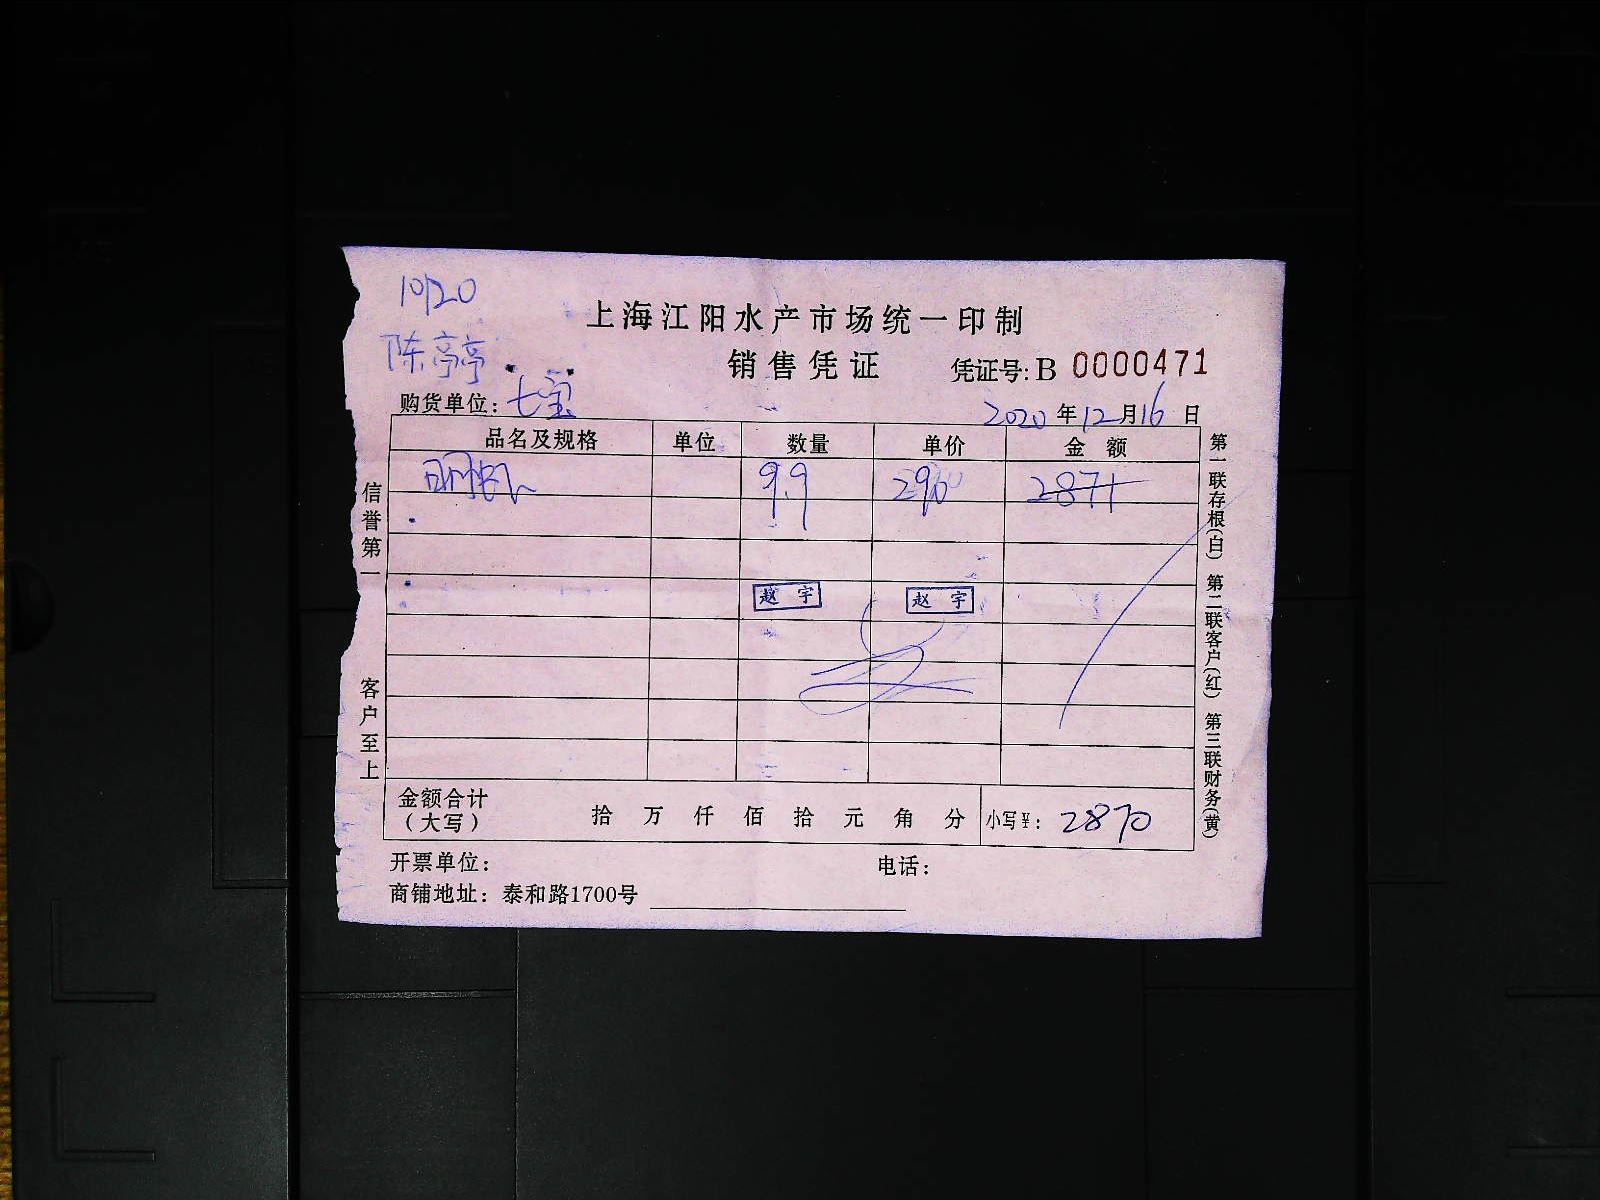 10/20
上海江阳水产市场统一印制
陈亭亭
销售凭证 凭证号:B 0000471
购货单位: 七宝 2020 年 12 月 16 日
品名及规格 单位 数量 单价 金额
9.9 290 2871
赵宇 赵宇
金额合计(大写) 拾 万 仟 佰 拾 元 角 分 小写¥: 2870
开票单位: 电话:
商铺地址: 泰和路1700号
信誉第一 客户至上
第一联存根(白) 第二联客户(红) 第三联财务(黄)